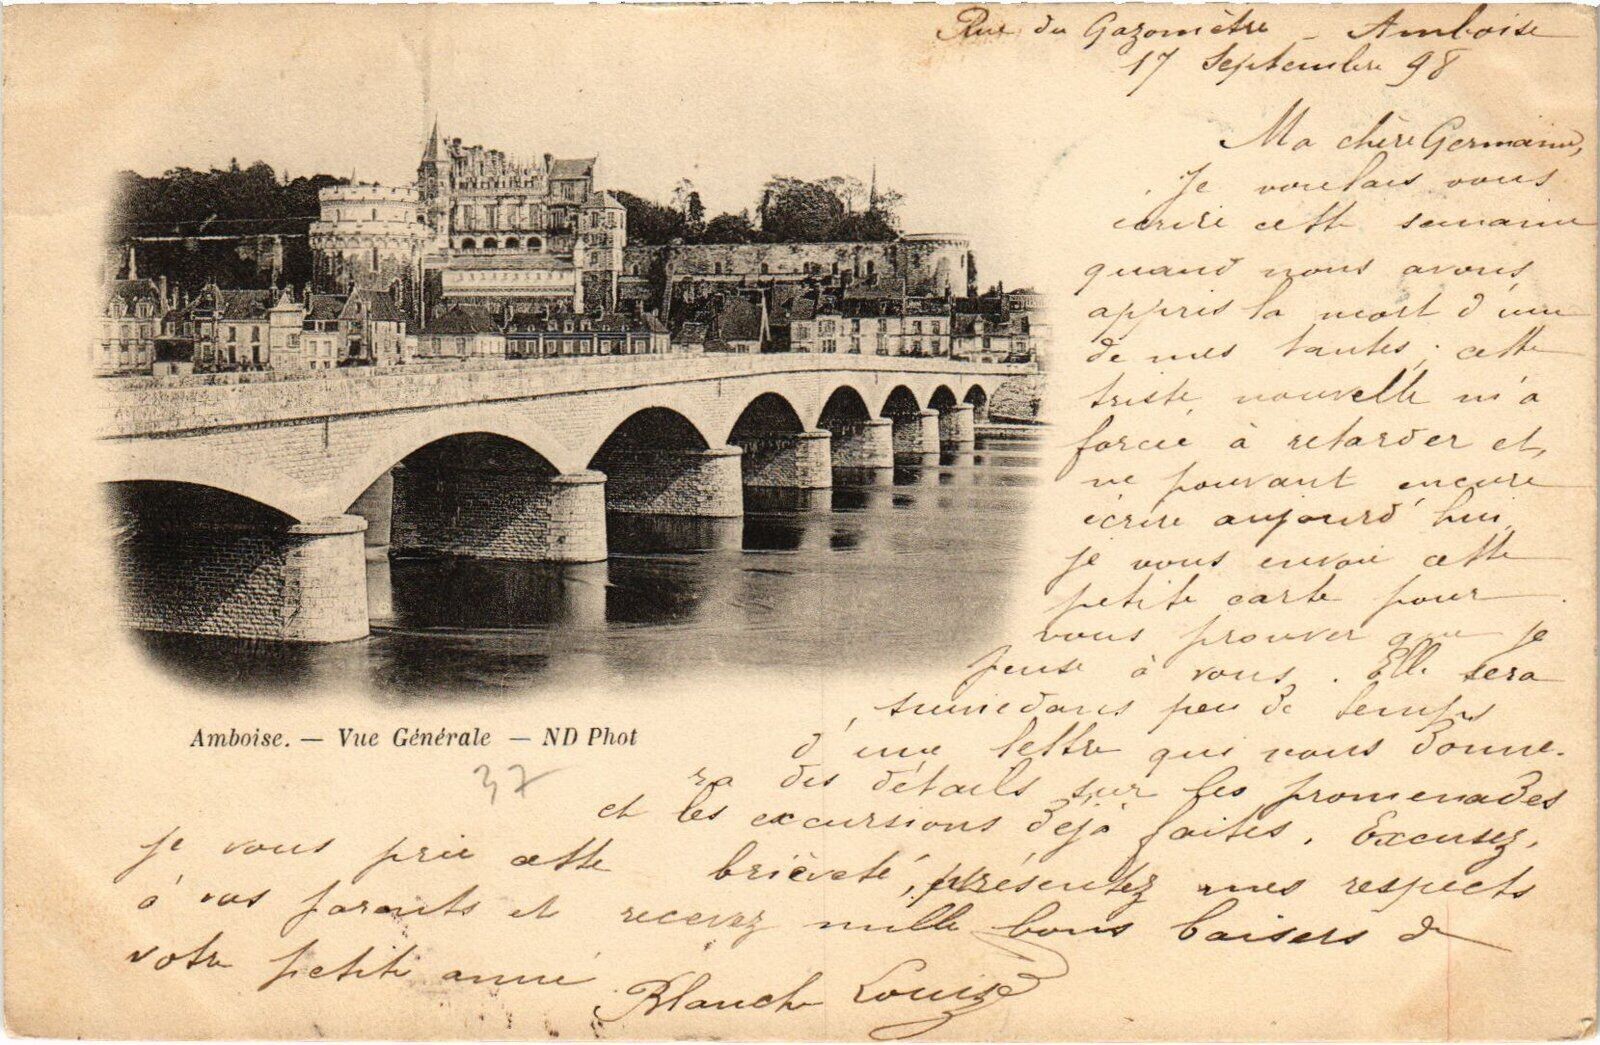 Rue du Gazomètre - Amboise
17 Septembre 98
Ma chère Germaine,
Je voulais vous
écrire cette semaine
quand nous avons
appris la mort d'une
de mes tantes ; cette
triste nouvelle m'a
forcée à retarder et,
ne pouvant encore
écrire aujourd'hui,
je vous envoie cette
petite carte pour
vous prouver que je
pense à vous. Elle sera
suivie dans peu de temps
d'une lettre qui vous donne-
ra des détails sur les promenades
et les excursions déjà faites. Excusez,
je vous prie cette brièveté, présentez mes respects
à vos parents et recevez mille bons baisers de
votre petite amie
Blanche Louise
Amboise. — Vue Générale — ND Phot
37